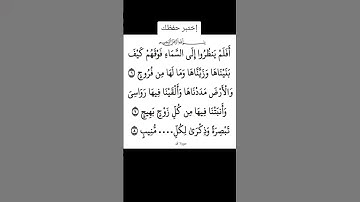 إختبر حفظك
أَفَلَمْ يَنظُرُوا إِلَى السَّمَاءِ فَوْقَهُمْ كَيْفَ
بَنَيْنَاهَا وَزَيَّنَّاهَا وَمَا لَهَا مِن فُرُوجٍ
وَالْأَرْضَ مَدَدْنَاهَا وَأَلْقَيْنَا فِيهَا رَوَاسِيَ
وَأَنبَتْنَا فِيهَا مِن كُلِّ زَوْجٍ بَهِيجٍ
تَبْصِرَةً وَذِكْرَىٰ لِكُلِّ.... مُّنِيبٍ